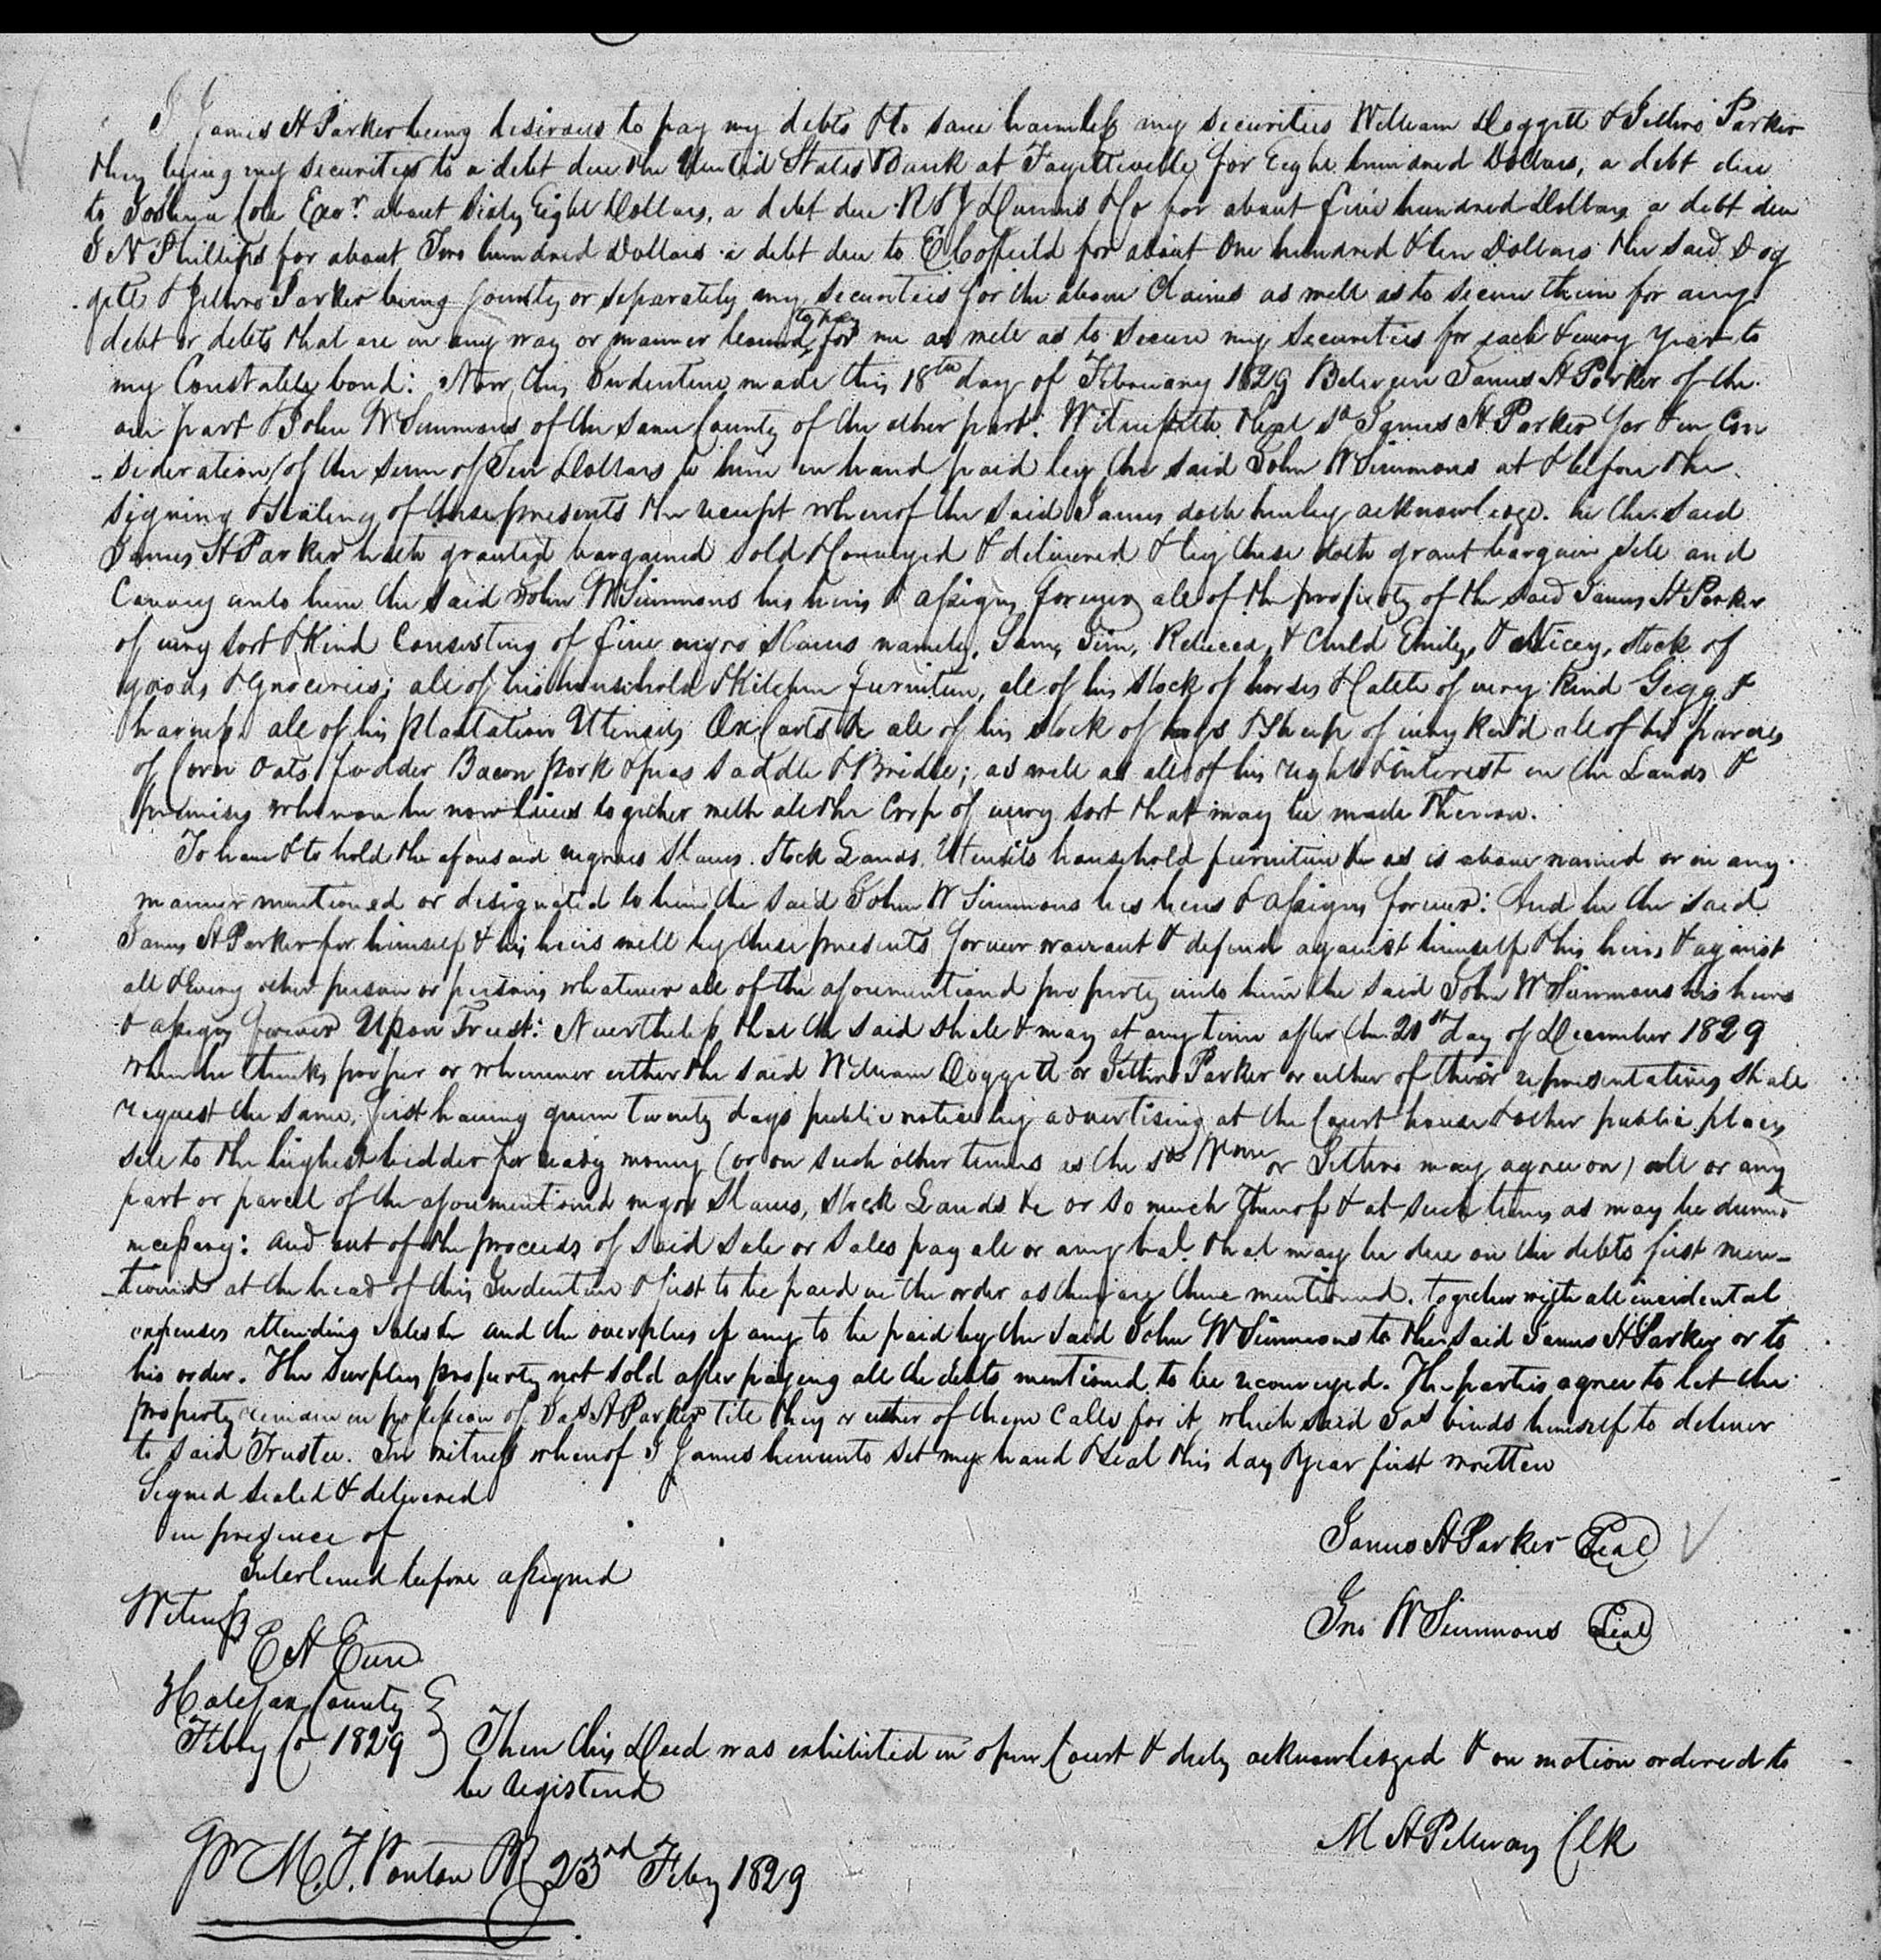 I James H Parker being desirous to pay my debts & to save harmless my securities William Doggett & Jethro Parker
they being my securities to a debt due the United States Bank at Fayetteville for Eight hundred Dollars, a debt due
to Joshua Cole Exor. about Sixty Eight Dollars, a debt due R & J Dunns & Co for about five hundred Dollars a debt due
J N Phillips for about Two hundred Dollars a debt due to E Cofield for about One hundred & ten Dollars the said Dog
gett & Jethro Parker being jointly or separately my securities for the above Claims as well as to secure them for any
debt or debts that are in any way or manner bound to pay for me as well as to secure my securities for each & every year to
my Constables bond: Now this Indenture made this 18th day of February 1829 Between James H Parker of the
one part & John W Simmons of the same County of the other part: Witnesseth that sd James H Parker for & in Con
-sideration of the sum of Ten Dollars to him in hand paid by the said John W Simmons at & before the
signing & sealing of these presents the receipt whereof the said James doth hereby acknowledge. he the said
James H Parker hath granted bargained sold & Conveyed & delivered & by these doth grant bargain sell and
Convey unto him the said John W Simmons his heirs & assigns forever all of the property of the said James H Parker
of every sort & Kind Consisting of five negro slaves namely, Sam, Jim, Rebecca, & Child Emily, & Nicey, stock of
goods & Groceries; all of his household & Kitchen furniture, all of his stock of horses & Cattle of every kind Gigg &
harness all of his plantation Utensils Ox Carts &c all of his stock of hogs & Sheep of every kind all of his parcels
of Corn Oats fodder Bacon pork & peas saddle & Bridle; as well as all of his right & interest in the Lands &
premises whereon he now lives together with all the Crop of every sort that may be made thereon.
To have & to hold the aforesaid negroes Slaves. Stock Lands, Utensils household furniture &c as is above named or in any
manner mentioned or designated to him the said John W Simmons his heirs & assigns forever: And he the said
James H Parker for himself & his heirs will by these presents forever warrant & defend against himself & his heirs & against
all & every other person or persons whatever all of the aforementioned property unto him the said John W Simmons his heirs
& assigns forever Upon Trust: Nevertheless that the said shall & may at any time after the 21st day of December 1829
when he thinks proper or whenever either the said William Doggett or Jethro Parker or either of their representatives shall
request the same, first having given twenty days public notice by advertising at the Court house & other public places
sell to the highest bidder for ready money (or on such other terms as the sd Wm or Jethro may agree on) all or any
part or parcel of the aforementioned negro Slaves, stock Lands &c or so much thereof & at such times as may be deemed
necessary: and out of the proceeds of said sale or sales pay all or any bal. that may be due on the debts first men-
-tioned at the head of this Indenture & first to be paid in the order as they are there mentioned. together with all incidental
expenses attending sales &c and the overplus if any to be paid by the said John W Simmons to the said James H Parker or to
his order. The surplus property not sold after paying all the debts mentioned to be reconveyed. The parties agree to let the
property remain in possession of Jas H Parker till they or either of them Calls for it which said Jas binds himself to deliver
to said Trustee. In witness whereof I James hereunto set my hand & seal this day & year first written
Signed sealed & delivered
in presence of
Interlined before assigned
James H Parker Seal
Witness
E H Eure
Jno W Simmons Seal
Halifax County
Feby Co 1829 } Then this Deed was exhibited in open Court & duly acknowledged & on motion ordered to
be registered
M H Pettway Clk
Pr M. T. Ponton PR 23rd Feby 1829